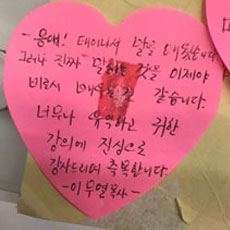 -응애! 태어나서 말을 배웠습니다
그러나 진짜 말하는 것을 이제야
비로서 배우는 것 같습니다.
너무나 유익하고 귀한
강의에 진심으로
감사드리며 축복합니다.
-이무열 목사-